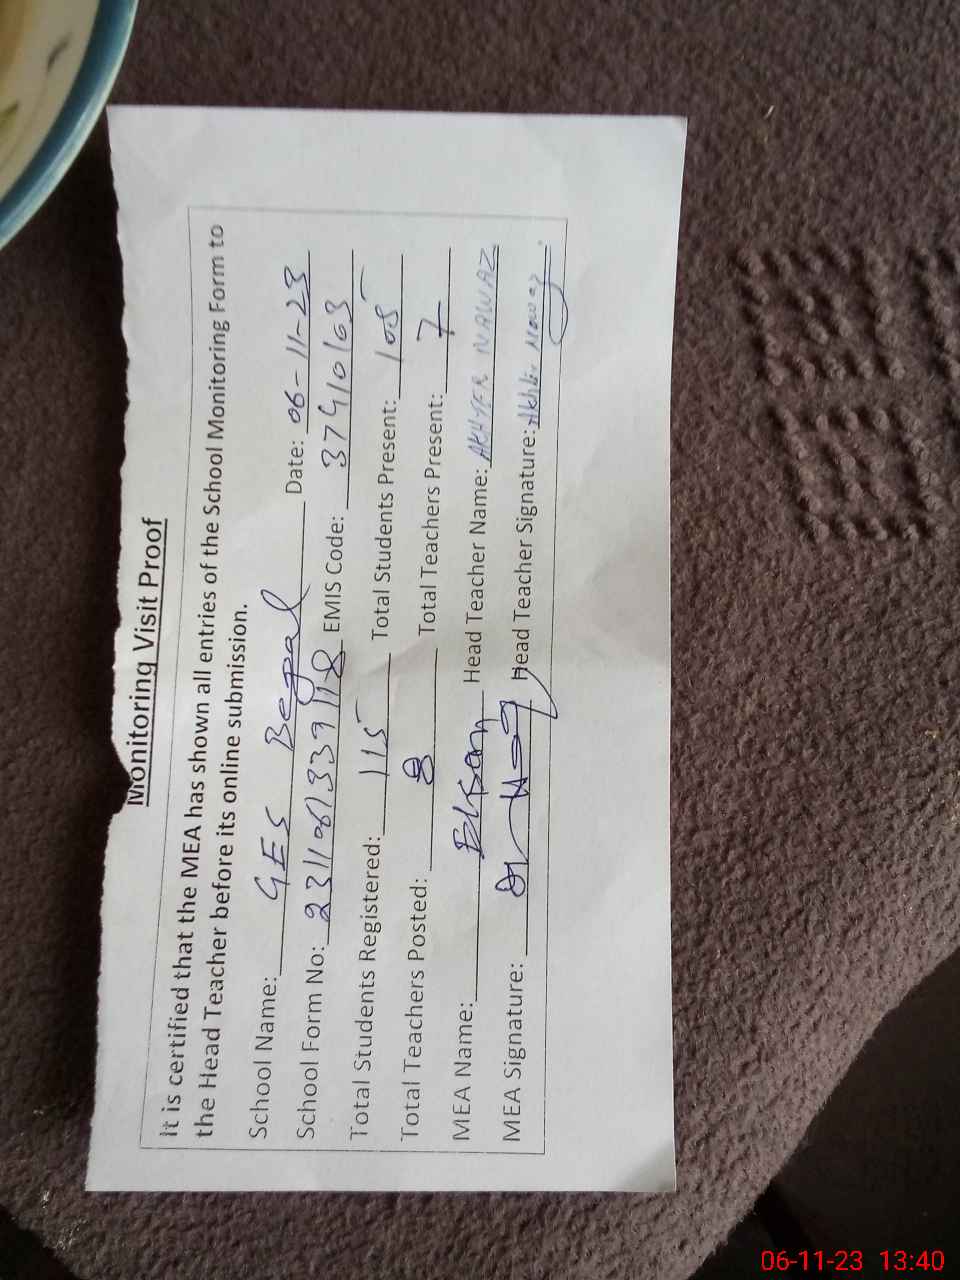 Monitoring Visit Proof
It is certified that the MEA has shown all entries of the School Monitoring Form to
the Head Teacher before its online submission.
School Name: GES Begal Date: 06-11-23
School Form No: EMIS Code: 37410103
Total Students Registered: 115 Total Students Present: 108
Total Teachers Posted: 8 Total Teachers Present: 7
MEA Name: Head Teacher Name: AKHTER NAWAZ
MEA Signature: Head Teacher Signature: Nawaz
06-11-23 13:40